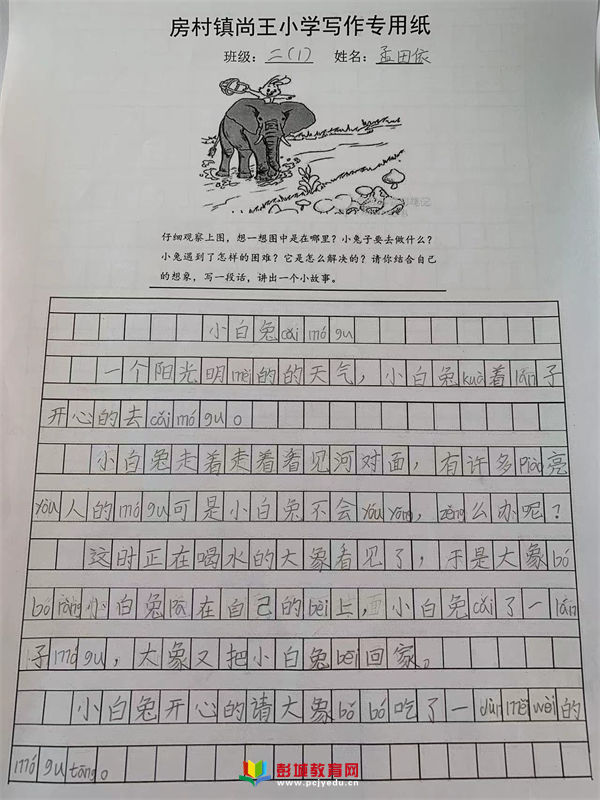 房村镇尚王小学写作专用纸
班级：二(1) 姓名：孟田依
仔细观察上图，想一想图中是在哪里？小兔子要去做什么？
小兔遇到了怎样的困难？它是怎么解决的？请你结合自己
的想象，写一段话，讲出一个小故事。
小白兔cǎi mó gu
一个阳光明mèi的的天气，小白兔kuà着lán子
开心的去cǎi mó gu。
小白兔走着走着看见河对面，有许多piào亮
yòu人的mó gu可是小白兔不会yóu yǒng，zěng么办呢？
这时正在喝水的大象看见了，于是大象bó
bó ràng小白兔pā在自己的bèi上，面小白兔cǎi了一lán
子mó gu，大象又把小白兔bēi回家。
小白兔开心的请大象bó bó吃了一dùn měi wèi的
mó gu tāng。
彭城教育网
www.pcjyedu.cn